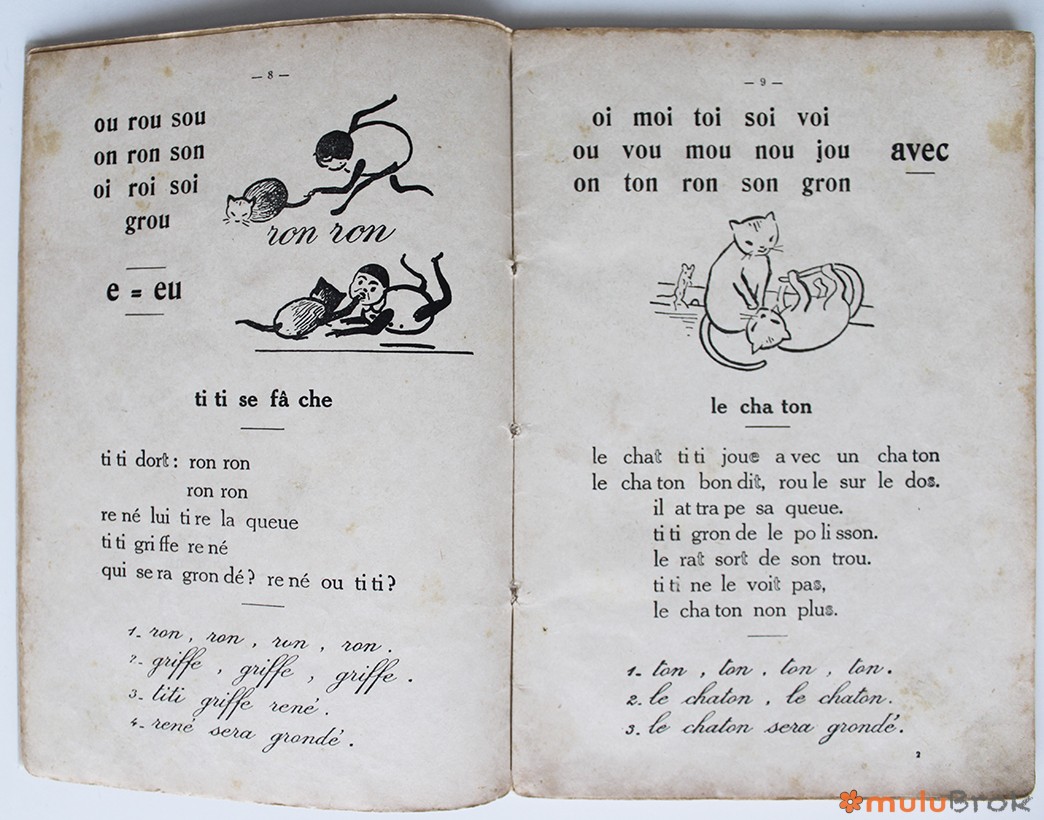 — 8 —
ou rou sou
on ron son
oi roi soi
grou
e = eu
ron ron
ti ti se fâ che
ti ti dort : ron ron
ron ron
re né lui ti re la queue
ti ti gri ffe re né
qui se ra gron dé ? re né ou ti ti ?
1- ron , ron , ron , ron .
2- griffe , griffe , griffe .
3- titi griffe rené .
4- rené sera grondé .
— 9 —
oi moi toi soi voi
ou vou mou nou jou
on ton ron son gron
avec
le cha ton
le chat ti ti joue a vec un cha ton
le cha ton bon dit, rou le sur le dos.
il at tra pe sa queue.
ti ti gron de le po li sson.
le rat sort de son trou.
ti ti ne le voit pas,
le cha ton non plus.
1- ton , ton . ton , ton .
2. le chaton , le chaton .
3. le chaton sera grondé .
2
muluBrok